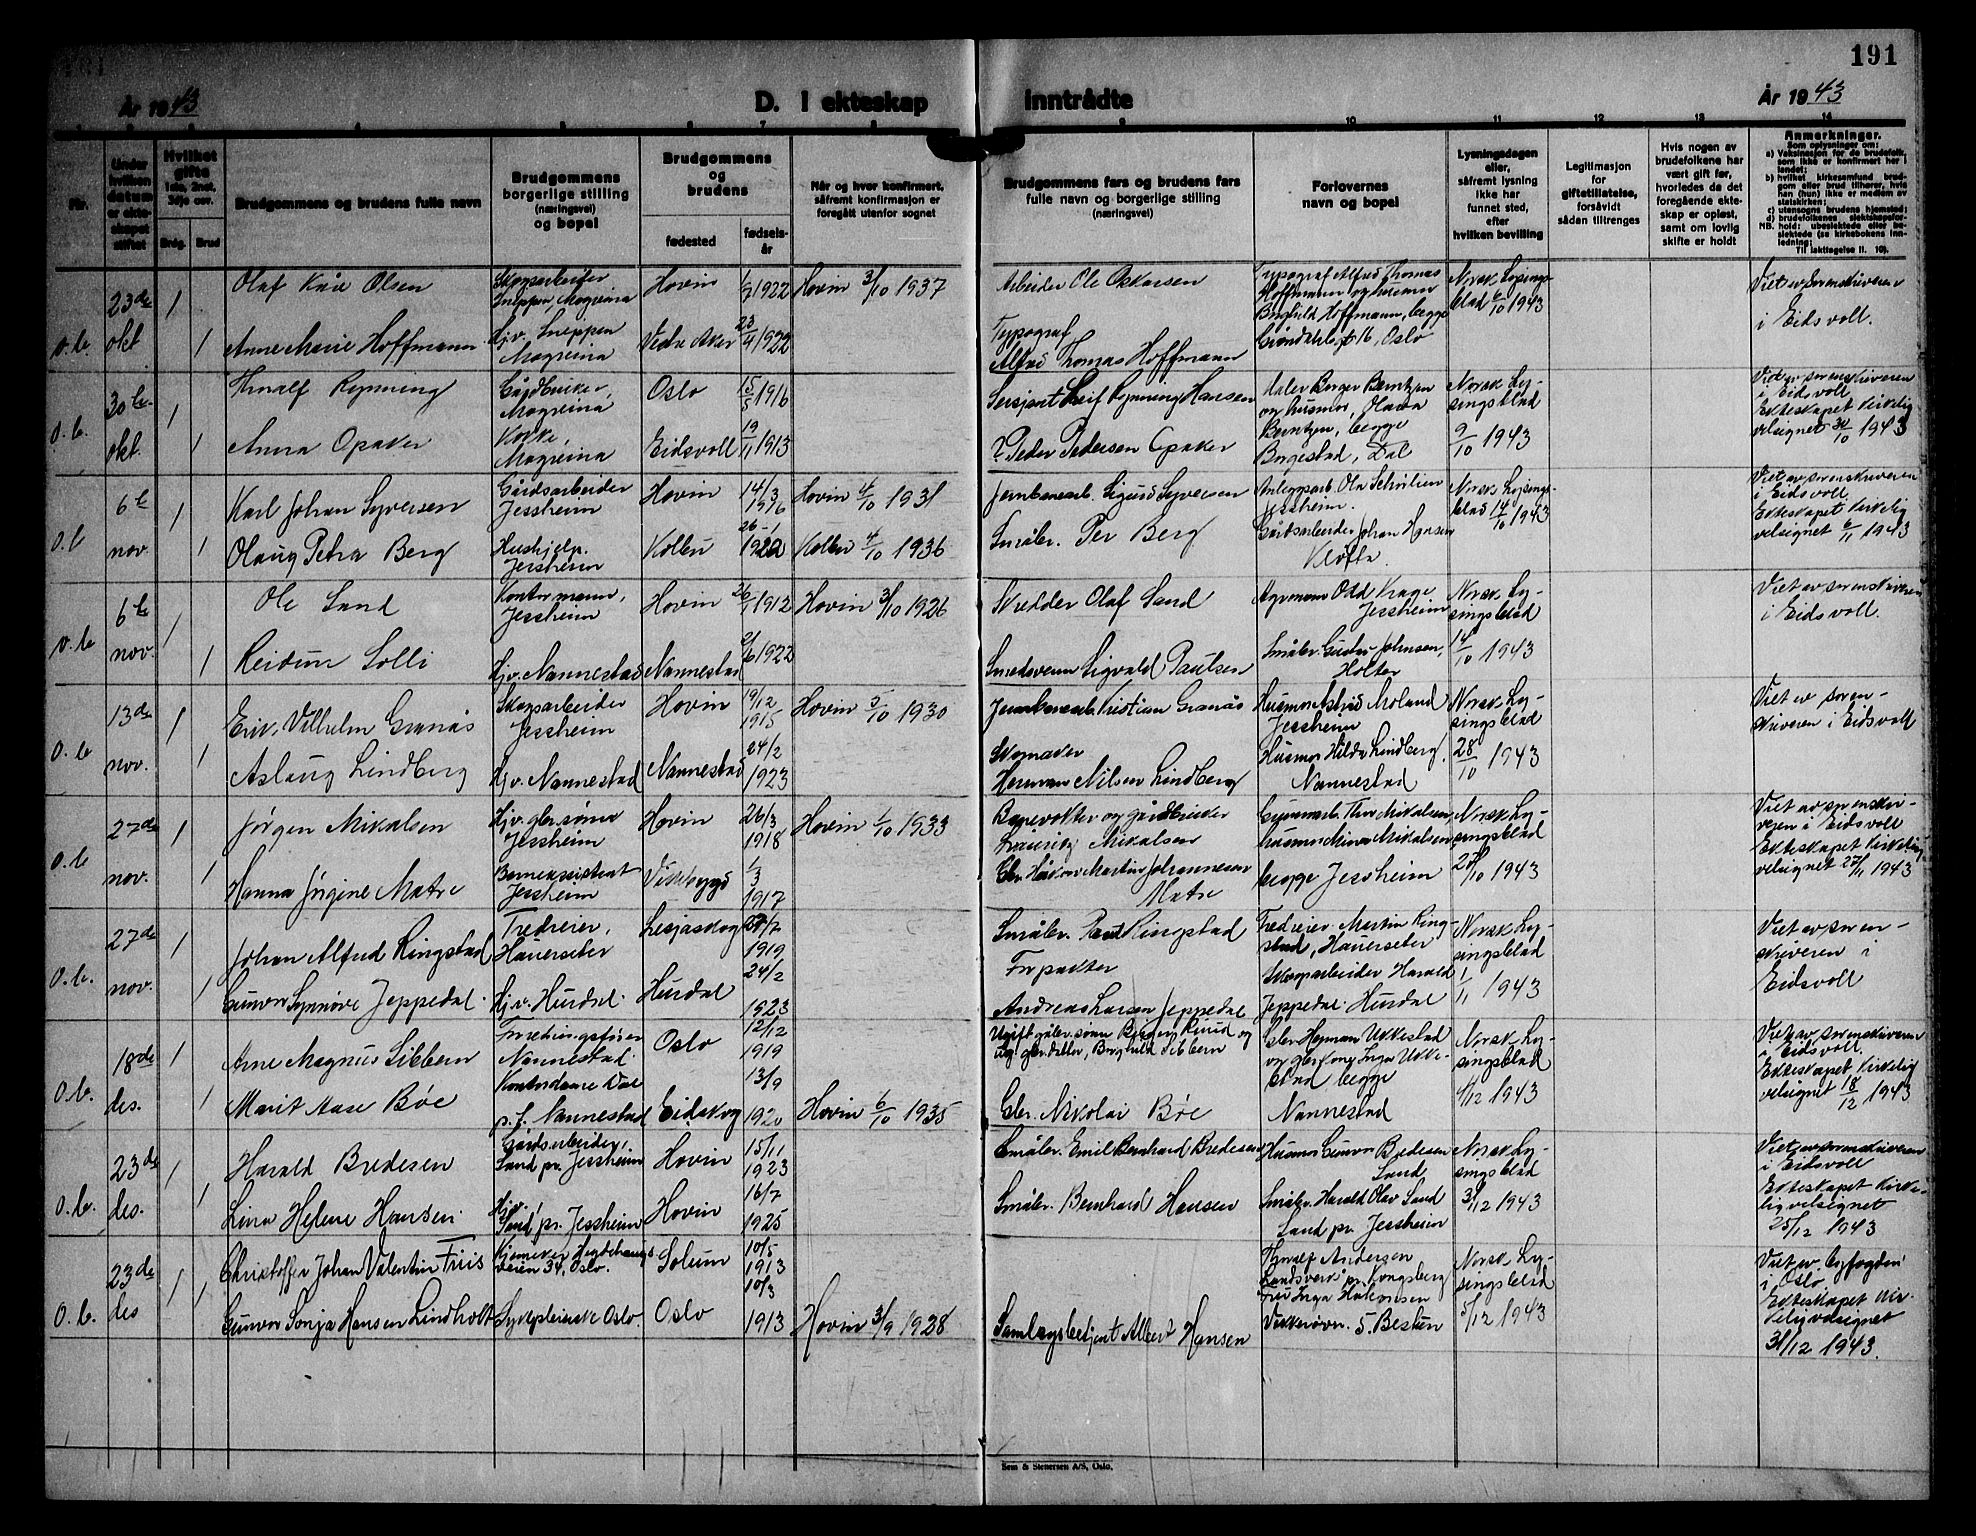 191
År 1943
D. I ekteskap inntrådte
År 1943
1 2 3 4 5 6 7 8 9 10 11 12 13 14
Nr.
Under hvilken datum er ekteskapet stiftet
Hvilket gifte 1ste, 2net, 3dje osv.
Brdg. Brud
Brudgommens og brudens fulle navn
Brudgommens borgerlige stilling (næringsvei) og bopel
Brudgommens og brudens
fødested
fødselsår
Når og hvor konfirmert, såfremt konfirmasjon er foregått utenfor sognet
Brudgommens fars og brudens fars fulle navn og borgerlige stilling (næringsvei)
Forlovernes navn og bopel
Lysningsdagen eller, såfremt lysning ikke har funnet sted, efter hvilken bevilling
Legitimasjon for giftetillatelse, forsåvidt sådan tiltrenges
Hvis nogen av brudefolkene har vært gift før, hvorledes da det foregående ekteskap er opløst, samt om lovlig skifte er holdt
Anmerkninger.
Som oplysninger om:
a) Vaksinasjon for de brudefolk, som ikke er konfirmert her i landet;
b) hvilket kirkesamfund brudgom eller brud tilhører, hvis han (hun) ikke er medlem av statskirken;
c) utensogns brudens hjemsted;
d) brudefolkenes slektskapsforhold: ubeslektede eller beslektede (se kirkebokens innledning;
NB. Til iakttagelse II. 10).
o.b. 23de okt 1
Olaf Kåre Olsen
Skogsarbeider Sneppen, Mogreina
Hovin 1/7 1922
Hovin 3/10 1937
Arbeider Ole Oskarsen
Typograf Alfred Thomas Hoffmann og husmor Borghild Hoffmann, begge Oslo
Norsk Lysingsblad 6/10 1943
Viet av sorenskriveren i Eidsvoll.
1
Anne Marie Hoffmann
Hjv. Sneppen Mogreina
Vestre Aker 23/4 1922
Typograf Alfred Thomas Hoffmann
o.b. 30te okt. 1
Thoralf Rynning
Gårdbruker, Mogreina
Oslo 15/5 1916
Sersjant Leif Rynning Hansen
Maler Borger Berntzen og husmor, Olava Berntzen, begge Borgestad, Dal
Norsk Lysingsblad 9/10 1943
Viet av sorenskriveren i Eidsvoll Ekteskapet kirkelig velsignet 30/10 1943
1
Anna Opaker
Kokke, Mogreina
Eidsvoll 19/11 1913
Peder Pedersen Opaker
o.b 6te nov. 1
Karl Johan Syversen
Gårdsarbeider Jessheim
Hovin 14/3 1916
Hovin 4/10 1931
Jernbanearb. Sigurd Syversen
Anleggsarb. Ola Jessheim.
Norsk Lysingsblad 14/10 1943
Viet av sorenskriveren i Eidsvoll Ekteskapet kirkelig velsignet 6/11 1943
1
Olaug Petra Berg
Hushjelp. Jessheim
Kolbu 26-1 1922
Kolbu 4/10 1936
Småbr. Per Berg
Gårdsarbeider Johan Hansen Kløfta.
o.b 6te nov. 1
Ole Sand
Kontormann, Jessheim
Hovin 26/1 1912
Hovin 3/10 1926
Skredder Olaf Sand
Agronom Odd Krage Jessheim
Norsk Lysingsblad 14/10 1943
Viet av sorenskriveren i Eidsvoll.
1
Reidun Solli
Hjv. Nannestad
Nannestad 2/6 1922
Smedsvenn Sigvald Paulsen
Småbr. Gustav Johnsen, Holter
o.b 13de nov. 1
Erik Vilhelm Granås
Skogsarbeider Jessheim
Hovin 19/12 1915
Hovin 5/10 1930
Jernbanearb. Kristian Granås
Husmor Astrid Moland Jessheim
Norsk Lysingsblad 28/10 1943
Viet av sorenskriveren i Eidsvoll
1
Aslaug Lindberg
Hjv. Nannestad
Nannestad 24/2 1923
Skomaker Herman Nilsen Lindberg
Husmor Hilda Lindberg, Nannestad
o.b 27de nov. 1
Jørgen Mikalsen
Hjv. gbr.sønn Jessheim
Hovin 26/3 1918
Hovin 1/10 1933
Banevokter og gårdbruker Mikalsen
Gummiarb. Thor Mikalsen, husmor Mina Mikalsen begge Jessheim
Norsk Lysingsblad 28/10 1943
Viet av sorenskriveren i Eidsvoll Ekteskapet kirkelig velsignet 27/11 1943
1
Hanna Jørgine Matre
Barneassistent Jessheim
Vikebygd 1/3 1917
Gbr. Håkon Martin Johannesen Matre
o.b. 27de nov. 1
Johan Alfred Ringstad
Tredreier, Hauerseter
Lesjaskog 27/7 1919
Småbr. Paul Ringstad
Tredreier Martin Ringstad, Hauerseter
Norsk Lysingsblad 1/11 1943
Viet av sorenskriveren i Eidsvoll
1
Gunvor Synnøve Jeppedal.
Hjv. Hurdal.
Hurdal 24/2 1923
Forpakter Andreas Larsen Jeppedal
Skogsarbeider Harald Jeppedal. Hurdal
o.b. 18de des. 1
Arne Magnus Sibbern
Forretningsfører Nannestad.
Oslo 12/12 1919
Ugift gbr. sønn Birger Rinud og ug. gbr. datter, Borghild Sibbern
Gbr Herman Ukkestad og gbr.kone Inga Ukkestad begge Nannestad
Norsk Lysingsblad 4/12 1943
Viet av sorenskriveren i Eidsvoll. Ekteskapet kirkelig velsignet 18/12 1943
1
Marit Aase Bøe
Kontordame Dal p.t. Nannestad
Eidskog 13/9 1920
Hovin 6/10 1935
Gbr. Nikolai Bøe
o.b. 23de des. 1
Harald Bredesen
Gårdsarbeider, Sand pr. Jessheim
Hovin 15/11 1923
Småbr. Emil Bernhard Bredesen
Husmor Gunvor Bredesen Sand
Norsk Lysingsblad 3/12 1943
Viet av sorenskriveren i Eidsvoll Ekteskapet kirkelig velsignet 25/12 1943
1
Lina Helene Hansen.
Hjv. Sand, pr. Jessheim
Hovin 16/7 1925
Småbr. Bernhard Hansen
Småbr. Harald Olav Sand Sand pr. Jessheim
o.b. 23de des 1
Christoffer Johan Valentin Friis
Kjemiker Hegdehaugsveien 34, Oslo.
Solum 10/5 1913
Thoralf Andersen Landsverk pr. Kongsberg
Norsk Lysingsblad 5/12 1943
Viet av byfogden i Oslo Ekteskapet kirkelig velsignet 31/12 1943.
1
Gunvor Sonja Hansen Lindholt
Sykepleierske Oslo.
Oslo 10/3 1913
Hovin 3/9 1928
Samlagsbetjent Albert Hansen
Fru Inga Hakonsen
Sem & Stenersen A/S, Oslo.